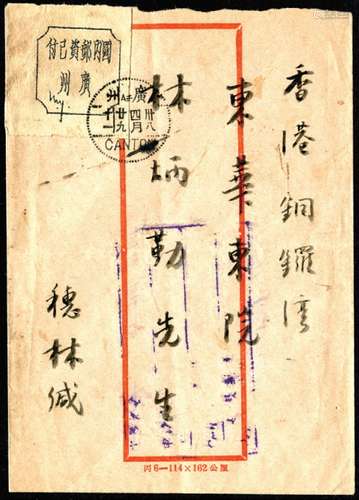 國內郵資已付
廣州
廣州
卅八
四月
廿九
CANTON
香港銅鑼湾
東華東院
林炳勤先生
穗林缄
丙6—114×162公厘